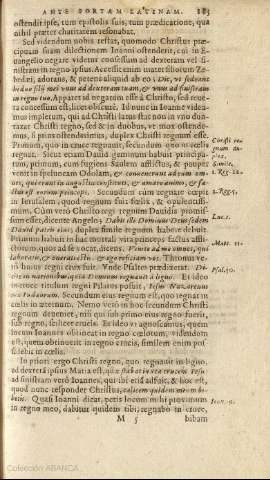 ANTE PORTAM LATINAM. 185
ostendit ipse, tum epistolis suis, tum prædicatione, quæ
nihil præter charitatem resonabat.
Sed videndum nobis restat, quomodo Christus præ-
cipuam suam dilectionem Ioanni ostenderit, cui in E-
uangelio negare videtur consessum ad dexteram vel si-
nistram in regno ipsius. Accessit enim mater filiorum Ze-
bedæi, adorans, & petens aliquid ab eo: Dic, vt sedeant
hi duo filij mei vnus ad dexteram tuam, & vnus ad sinistram
in regno tuo. Apparet id negatum esse à Christo, sed reue-
ra concessum est, licet obscurè. Id nunc in Ioanne videa-
mus impletum, qui ad Christi latus stat
tatur Christi regno, sed & in duobus, vt mox ostende-
mus, si prius ostenderimus, duplex Christi regnum esse.
Primum, quo in cruce regnauit, secundum quo in cœlis
regnat. Sicut etiam Dauid geminum habuit principa-
tum, primum, cum fugiens Saulem afflictus, & pauper
venit in speluncam Odolam, & conuenerunt ad eum om-
nes, qui erant in angustia constituti, & amaro animo, & fa-
ctus est eorum princeps. Secundum cum regnare cœpit
in Ierusalem, quod regnum fuit fœlix, & opulentissi-
mum. Cùm vero Christo regi regnum Dauidis promis-
sum esset, dicente Angelo: Dabit illi Dominus Deus sedem
Dauid patris eius, duplex similiter regnum habere debuit.
Primum habuit in hac mortali vita princeps factus affli-
ctorum, quos ad se vocat, dicens: Venite ad me omnes, qui
laboratis, & onerati estis & ego reficiam vos. Thronus ve-
rò huius regni crux fuit. Vnde Psaltes prædixerat: Di-
cite in nationibus, quia Dominus regnauit à ligno. Et ideo
in cruce titulum regni Pilatus posuit, Iesus Nazarenus
rex Iudæorum. Secundum eius regnum est, quo regnat in
cœlis in æternum. Nemo verò in hoc secundum Christi
regnum deueniet, nisi qui sub primo eius regno fuerit,
sub regno, scilicet crucis. Et ideo vt agnoscamus, quem
locum Ioannes obtineat in regno cœlorum, videndum
est, quem obtinuerit in regno crucis, similem enim pos-
sidebit in cœlis.
In priori ergo Christi regno, quo regnauit in ligno,
ad dexteram ipsius Maria est, quæ stabat iuxta crucem Iesu
ad sinistram verò Ioannes, qui ibi etiam adfuit, & hoc est,
quod nunc respondet Christus, calicem quidem meum bi-
betis. Quasi Ioanni dicat, petis locum mihi proximum
in regno meo, dabitur quidem tibi, regnabo in cruce,
M 5 bibam
Christi re-
gnum du-
plex.
Simile.
1. Reg. 22.
2. Reg. 5.
Luc. 1.
Matt. 11.
Psal. 95.
Ioan. 19.
Colección ABANCA